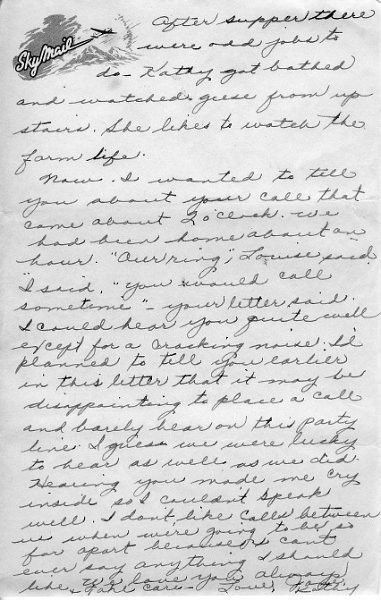 Sky Mail
After supper there
were odd jobs to
do - Kathy got bathed
and watched geese from up
stairs. She likes to watch the
farm life.
Now. I wanted to tell
you about your call that
came about 2 o'clock. We
had been home about an
hour. "Our ring," Louise said.
"I said, "you would call
sometime" - your letter said.
I could hear you quite well
except for a cracking noise. I'd
planned to tell you earlier
in this letter that it may be
disappointing to place a call
and barely hear on this party
line. I guess we were lucky
to hear as well as we did.
Hearing you made me cry
inside so I couldn't speak
well. I don't like calls between
us when we're going to be so
far apart because I can't
ever say anything I should
like. We love you always
& take care - Love, Kathy